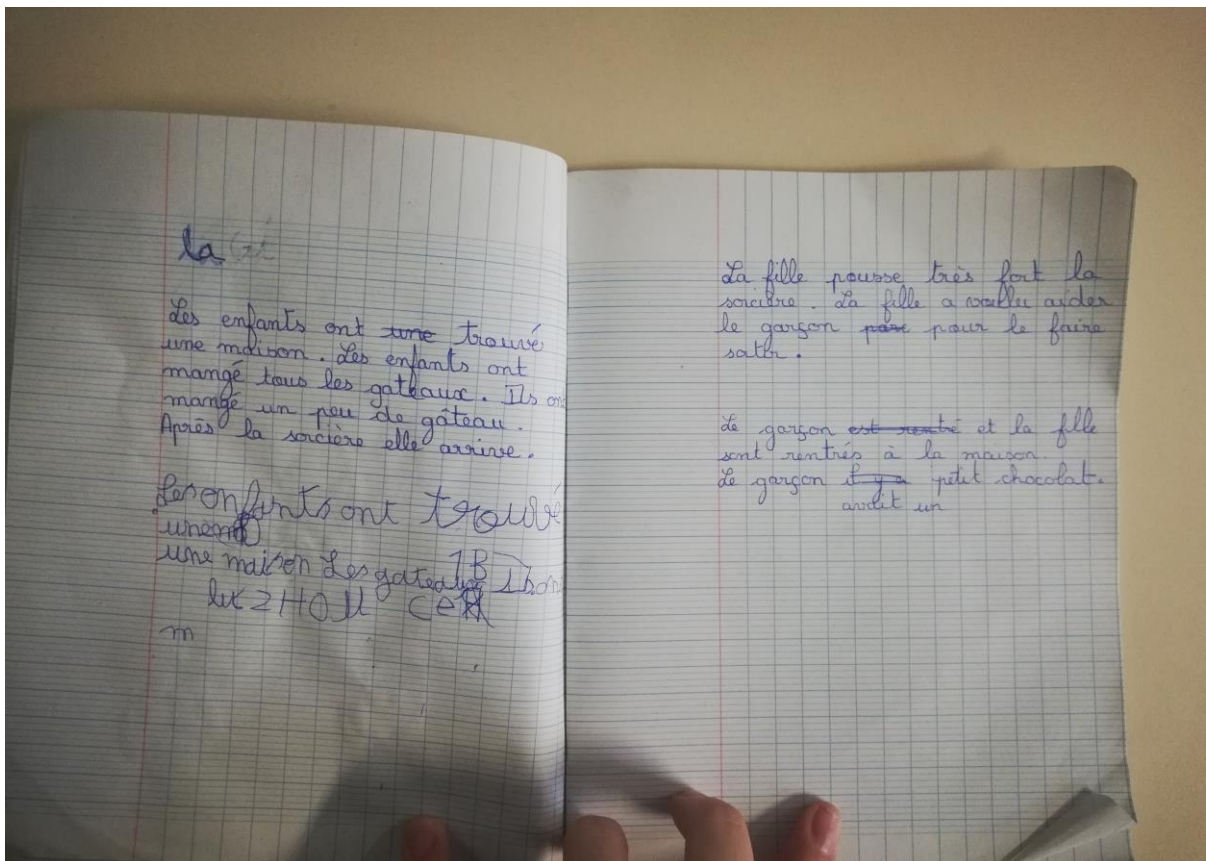 la
Les enfants ont une trouvé
une maison. Les enfants ont
mangé tous les gateaux. Ils on
mangé un peu de gâteau.
Après la sorcière elle arrive.
Les enfants ont trouvé
une
une maison Les gateaux
m
La fille pousse très fort la
sorcière. La fille a vouller aider
le garçon pour le faire
satir.
Le garçon est rentré et la fille
sont rentrés à la maison.
Le garçon il y a petit chocolat.
avait un